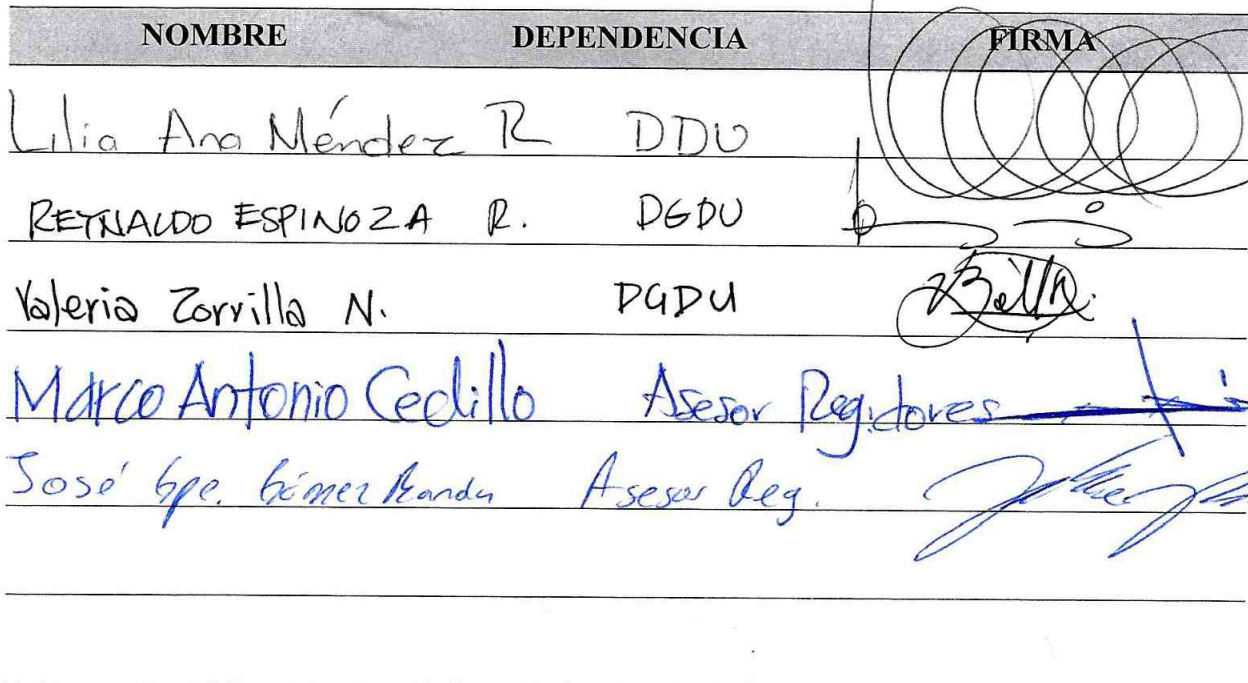 NOMBRE DEPENDENCIA FIRMA
Lilia Ana Méndez R DDU
REYNALDO ESPINOZA R. DGDU
Valeria Zorrilla N. DGDU
Marco Antonio Cedillo Asesor Regidores
José Gpe. Gómez Asesor Reg.